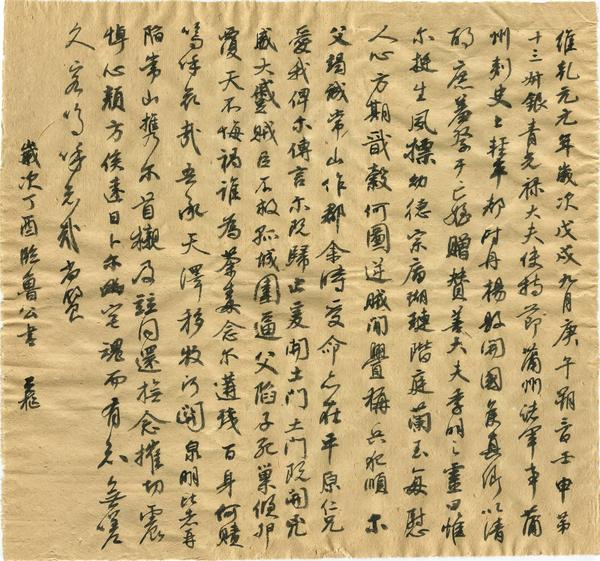 維乾元元年歲次戊戌九月庚午朔三日壬申第
十三叔銀青光祿大夫使持節蒲州諸軍事蒲
州刺史上輕車都尉丹楊縣開國侯真卿以清
酌庶羞祭于亡姪贈贊善大夫季明之靈曰惟
爾挺生夙標幼德宗廟瑚璉階庭蘭玉每慰
人心方期戩穀何圖逆賊閒釁稱兵犯順爾
父竭誠常山作郡余時受命亦在平原仁兄
愛我俾爾傳言爾既歸止爰開土門土門既開兇
威大蹙賊臣不救孤城圍逼父陷子死巢傾卵
覆天不悔禍誰為荼毒念爾遘殘百身何贖
嗚呼哀哉吾承天澤移牧河關泉明比者再
陷常山攜爾首櫬及茲同還撫念摧切震
悼心顏方俟遠日卜爾幽宅魂而有知無嗟
久客嗚呼哀哉尚饗
歲次丁酉臨魯公書